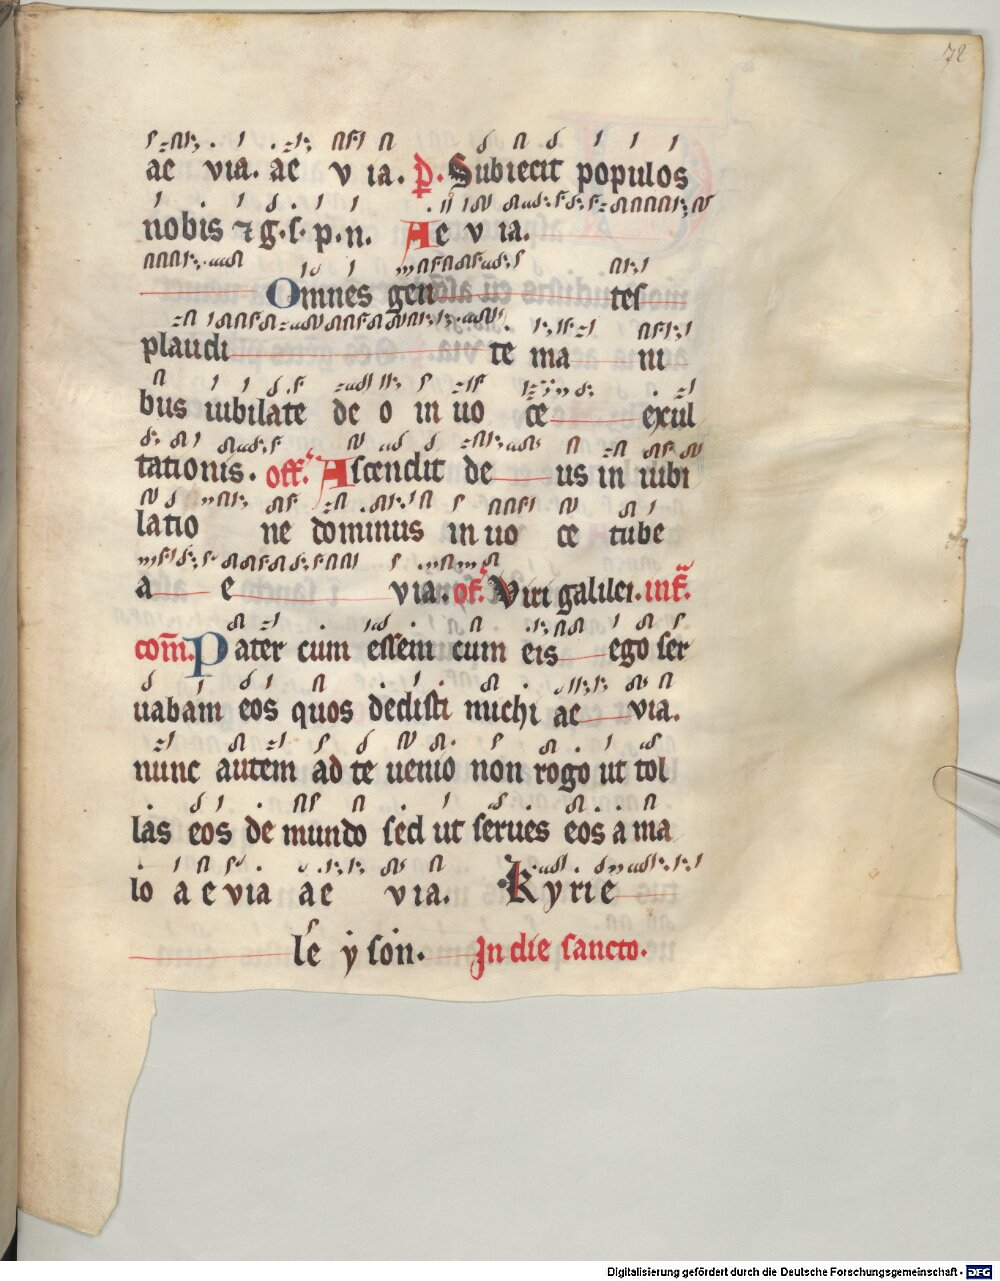 72
ae via. ae v ia. p. Subiecit populos
nobis ⁊ g. s. p. n. Ae v ia.
Omnes gen tes
plaudi te ma ni
bus iubilate de o in uo ce exul
tationis. off. Ascendit de us in iubi
latio ne dominus in uo ce tube
a e via. of. Viri galilei. inf.
com̄. Pater cum essem cum eis ego ser
uabam eos quos dedisti michi ae via.
nunc autem ad te uenio non rogo ut tol
las eos de mundo sed ut serues eos a ma
lo a e via ae via. Kyrie
le y son. In die sancto.
Digitalisierung gefördert durch die Deutsche Forschungsgemeinschaft - DFG